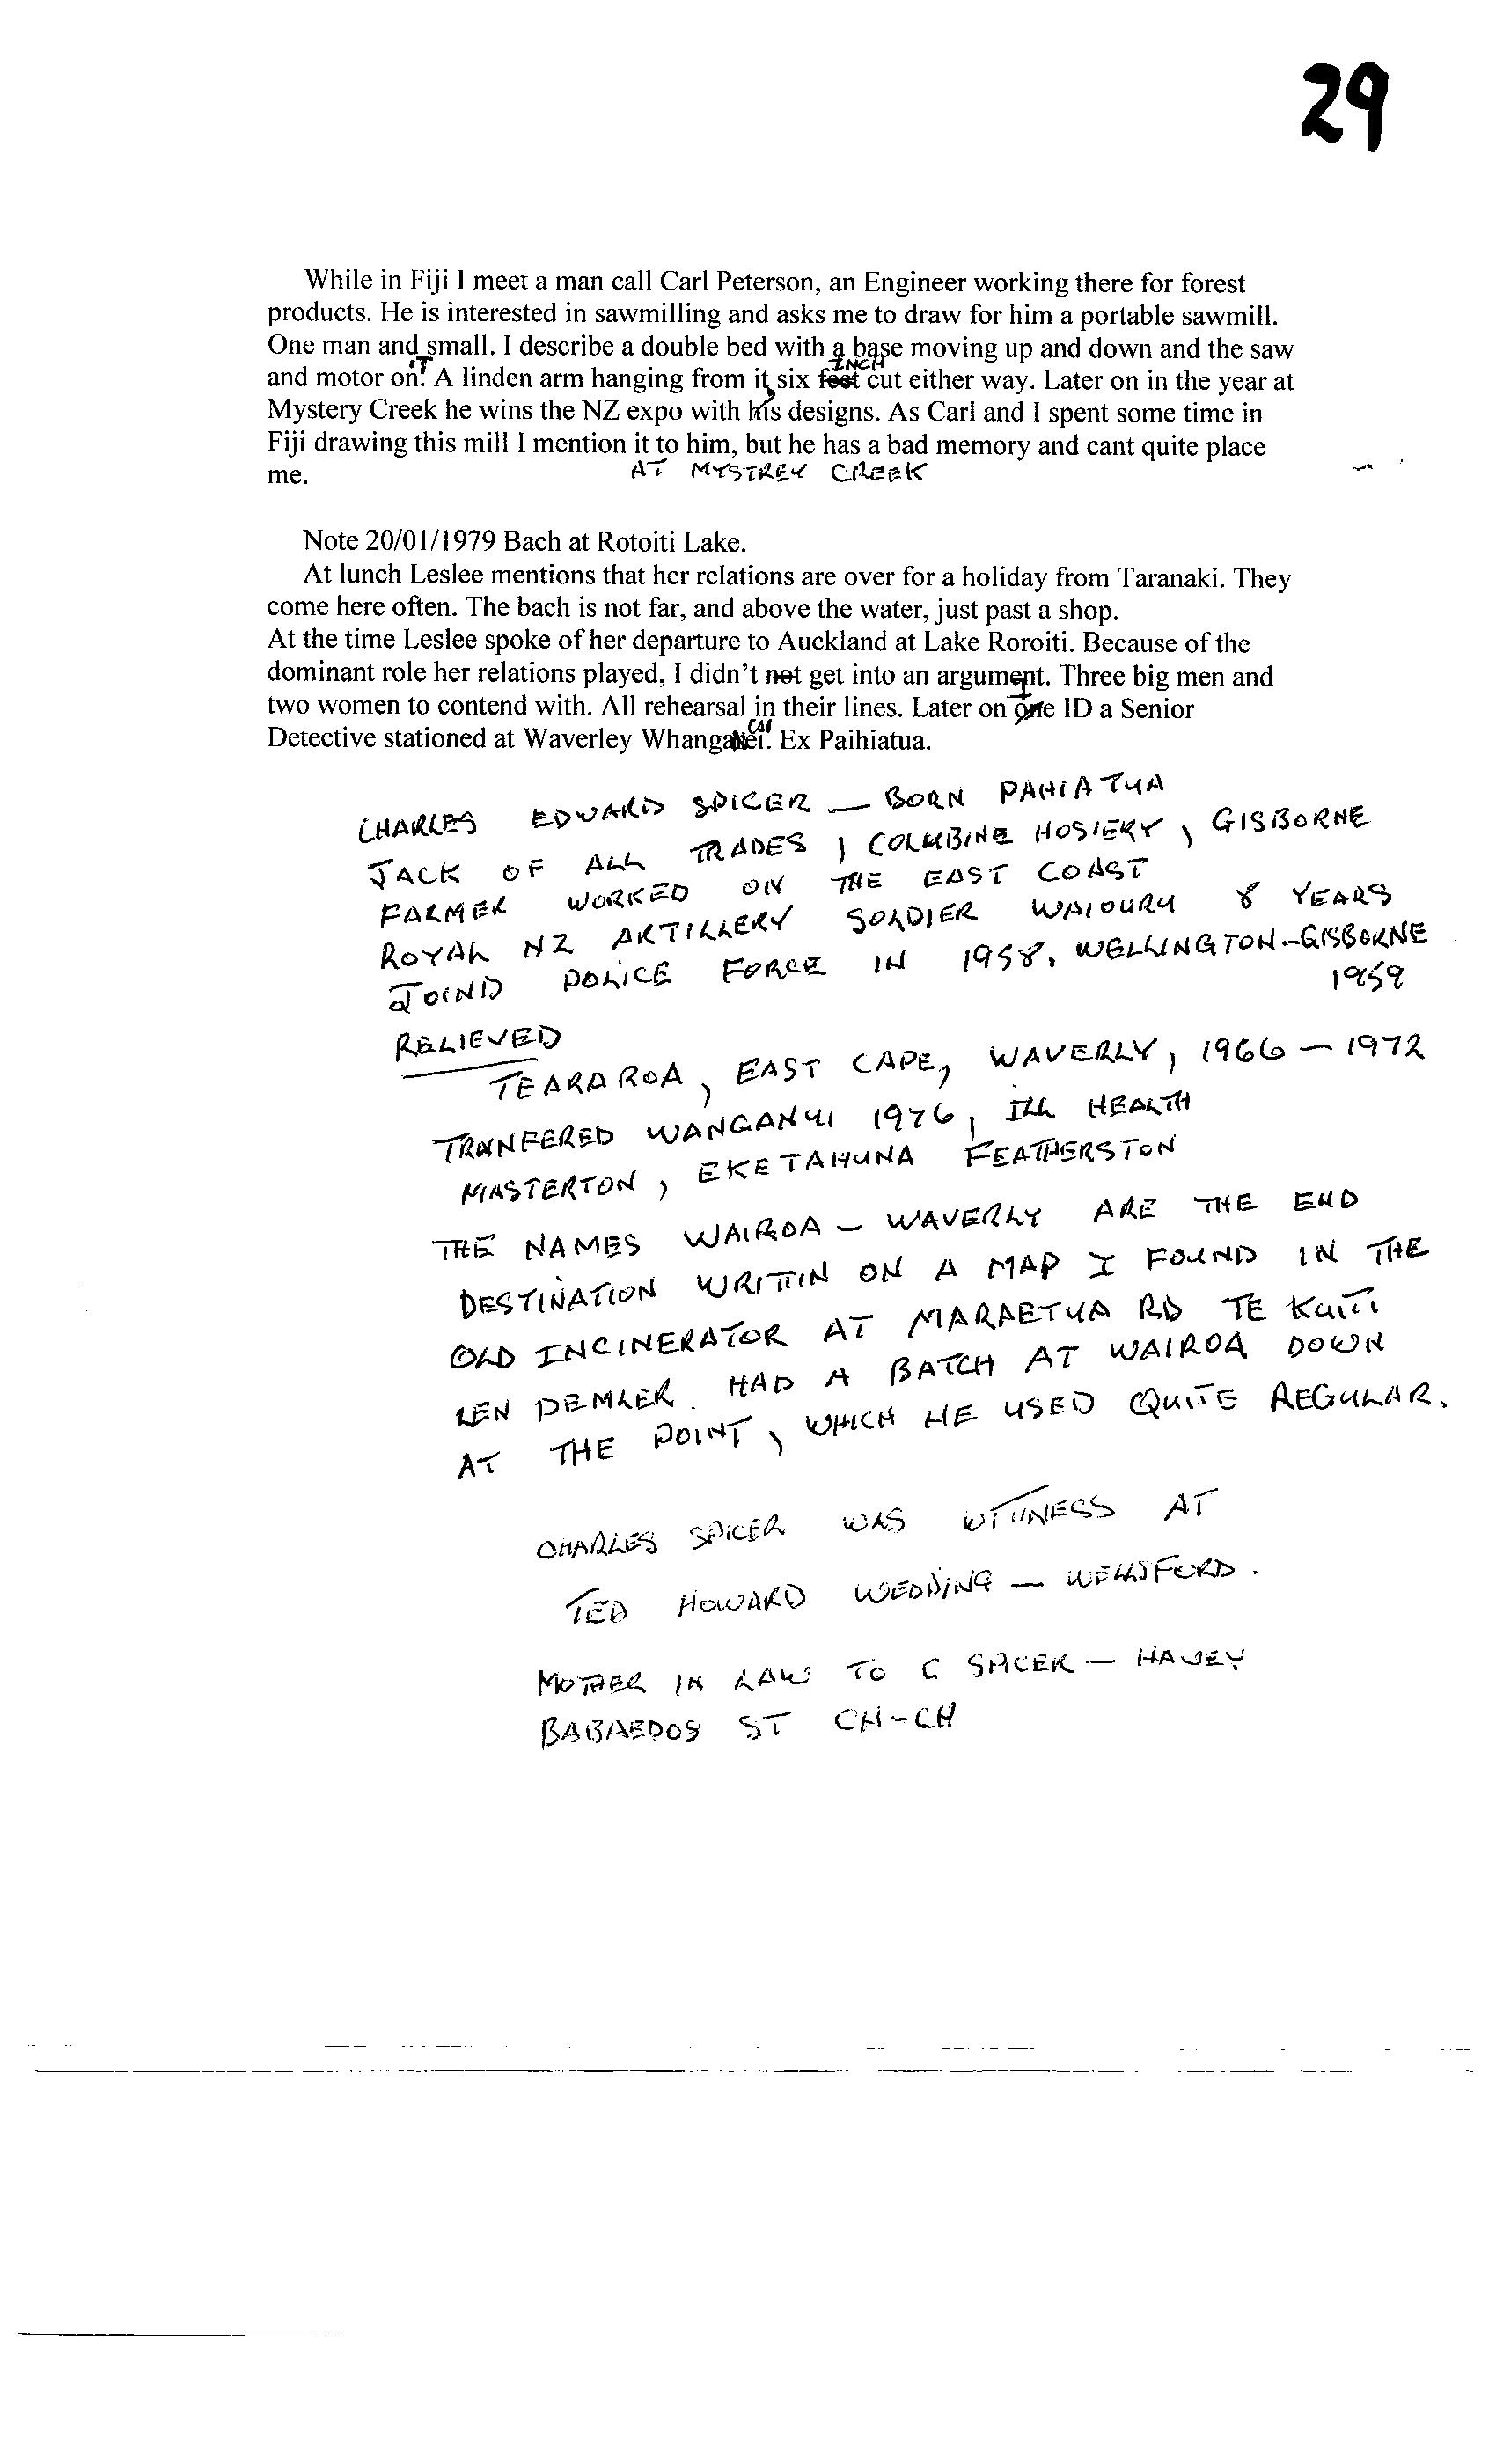 29
While in Fiji I meet a man call Carl Peterson, an Engineer working there for forest
products. He is interested in sawmilling and asks me to draw for him a portable sawmill.
One man and small. I describe a double bed with a base moving up and down and the saw
and motor on. 'T A linden arm hanging from it, six feet INCH cut either way. Later on in the year at
Mystery Creek he wins the NZ expo with his designs. As Carl and I spent some time in
Fiji drawing this mill I mention it to him, but he has a bad memory and cant quite place
me. AT MYSTREY CREEK
Note 20/01/1979 Bach at Rotoiti Lake.
At lunch Leslee mentions that her relations are over for a holiday from Taranaki. They
come here often. The bach is not far, and above the water, just past a shop.
At the time Leslee spoke of her departure to Auckland at Lake Roroiti. Because of the
dominant role her relations played, I didn't not get into an argument. Three big men and
two women to contend with. All rehearsal in their lines. Later on one I ID a Senior
Detective stationed at Waverley Whangauei. Ex Paihiatua.
CHARLES EDWARD SPICER — BORN PAHIATUA
JACK OF ALL TRADES, COLUMBINE HOSIERY, GISBORNE
FARMER WORKED ON THE EAST COAST
ROYAL NZ ARTILLERY SOLDIER WAIOURU 8 YEARS
JOIND POLICE FORCE IN 1958. WELLINGTON-GISBORNE
1959
RELIEVED
TEARAROA, EAST CAPE, WAVERLY, 1966 — 1972
TRANFERED WANGANUI 1976, ILL HEALTH
MASTERTON, EKETAHUNA FEATHERSTON
THE NAMES WAIROA — WAVERLY ARE THE END
DESTINATION WRITTIN ON A MAP I FOUND IN THE
OLD INCINERATOR AT MARAETUA RD TE KUITI
LEN DEMLER. HAD A BATCH AT WAIROA DOWN
AT THE POINT, WHICH HE USED QUITE REGULAR.
CHARLES SPICER WAS WITTNESS AT
TED HOWARD WEDDING — WELLSFORD.
MOTHER IN LAW TO C SPICER — HAVEY
BABAEDOS ST CH-CH